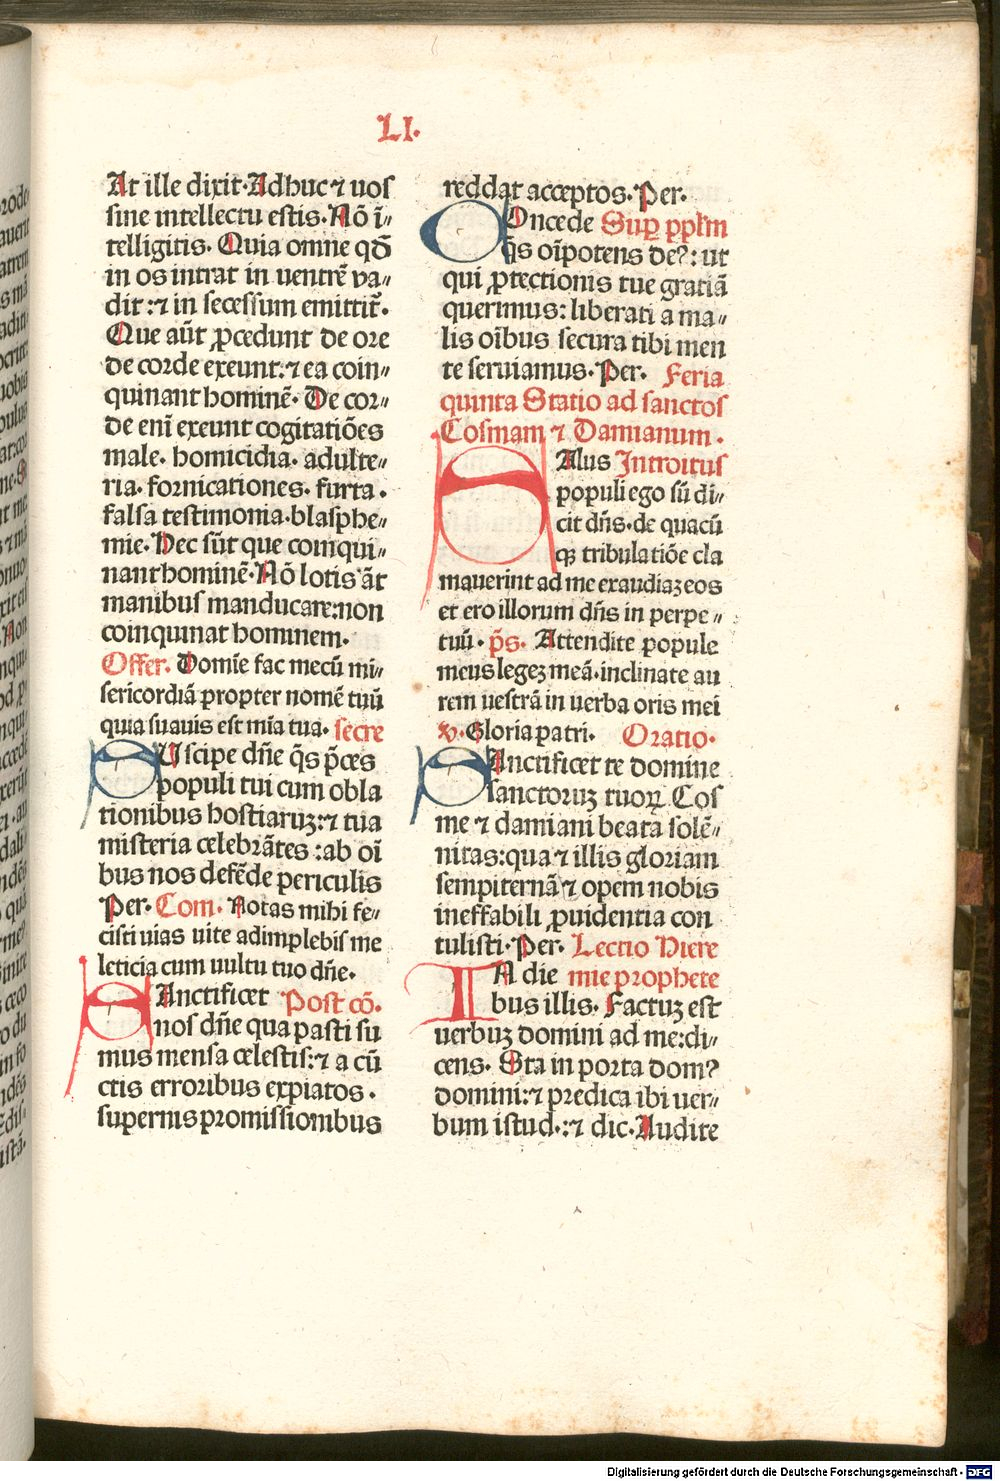 LI.
At ille dixit. Adhuc ⁊ uos
sine intellectu estis. Nō ī⸗
telligitis. Quia omne qđ
in os intrat in uentrē va⸗
dit: ⁊ in secessum emittit̄.
Que aūt ꝓcedunt de ore
de corde exeunt: ⁊ ea coin⸗
quinant hominē. De cor⸗
de enī exeunt cogitatiōes
male. homicidia. adulte⸗
ria. fornicationes. furta.
falsa testimonia. blasphe⸗
mie. Hec sūt que coinqui⸗
nant hominē. Nō lotis āt
manibus manducare: non
coinquinat hominem.
Offer. Domīe fac mecū mi⸗
sericordiā propter nomē tuū
quia suauis est mīa tua. secre
SUscipe dn̄e q̄s p̄ces
populi tui cum obla
tionibus hostiaruꝫ: ⁊ tua
misteria celebrātes: ab oī
bus nos defēde periculis
Per. Com. Notas mihi fe⸗
cisti uias uite adimplebis me
leticia cum uultu tuo dn̄e.
SAnctificet Post cō.
nos dn̄e qua pasti su
mus mensa celestis: ⁊ a cū
ctis erroribus expiatos.
supernis promissionibus
reddat acceptos. Per.
COncede Suꝑ pplm̄
q̄s oīpotens deꝰ: ut
qui ꝓtectionis tue gratiā
querimus: liberati a ma⸗
lis oībus secura tibi men
te seruiamus. Per. Feria
quinta Statio ad sanctos
Cosmam ⁊ Damianum.
SAlus Introitus
populi ego sū di⸗
cit dn̄s. de quacū
qꝫ tribulatiōe cla
mauerint ad me exaudiaꝫ eos
et ero illorum dn̄s in perpe⸗
tuū. p̄s. Attendite popule
meus legeꝫ meā. inclinate au
rem uestrā in uerba oris mei
v. Gloria patri. Oratio.
SAnctificet te domine
sanctoruꝫ tuoꝝ Cos
me ⁊ damiani beata solē⸗
nitas: qua ⁊ illis gloriam
sempiternā ⁊ opem nobis
ineffabili ꝓuidentia con
tulisti. Per. Lectio Hiere
IN die mie prophete
bus illis. Factuꝫ est
uerbuꝫ domini ad me: di⸗
cens. Sta in porta domꝰ
domini: ⁊ predica ibi uer⸗
bum istud.: ⁊ dic. Audite
Digitalisierung gefördert durch die Deutsche Forschungsgemeinschaft - DFG